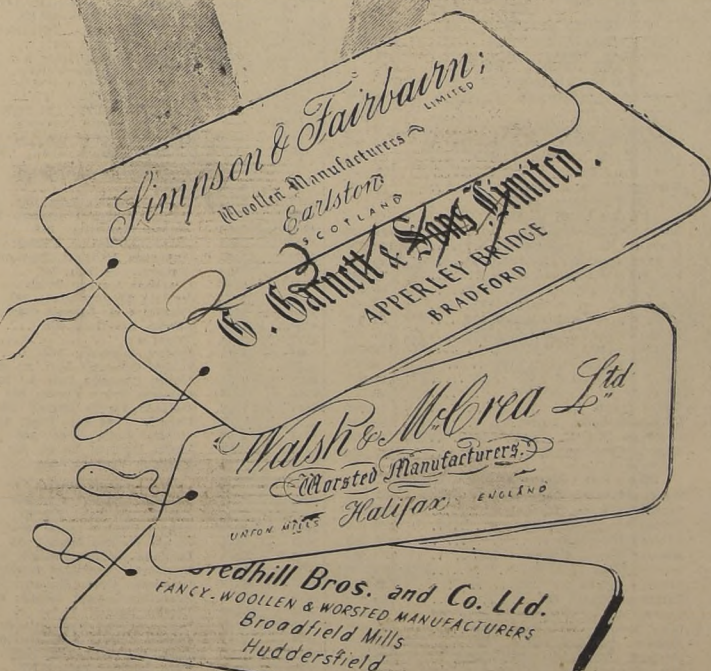 Simpson & Fairbairn;
LIMITED
Woollen Manufacturers
Earlston
SCOTLAND
G. Garnett & Sons Limited.
APPERLEY BRIDGE
BRADFORD
Walsh & McCrea Ltd
Worsted Manufacturers.
UNION MILLS Halifax ENGLAND
Gledhill Bros. and Co. Ltd.
FANCY-WOOLLEN & WORSTED MANUFACTURERS
Broadfield Mills
Huddersfield